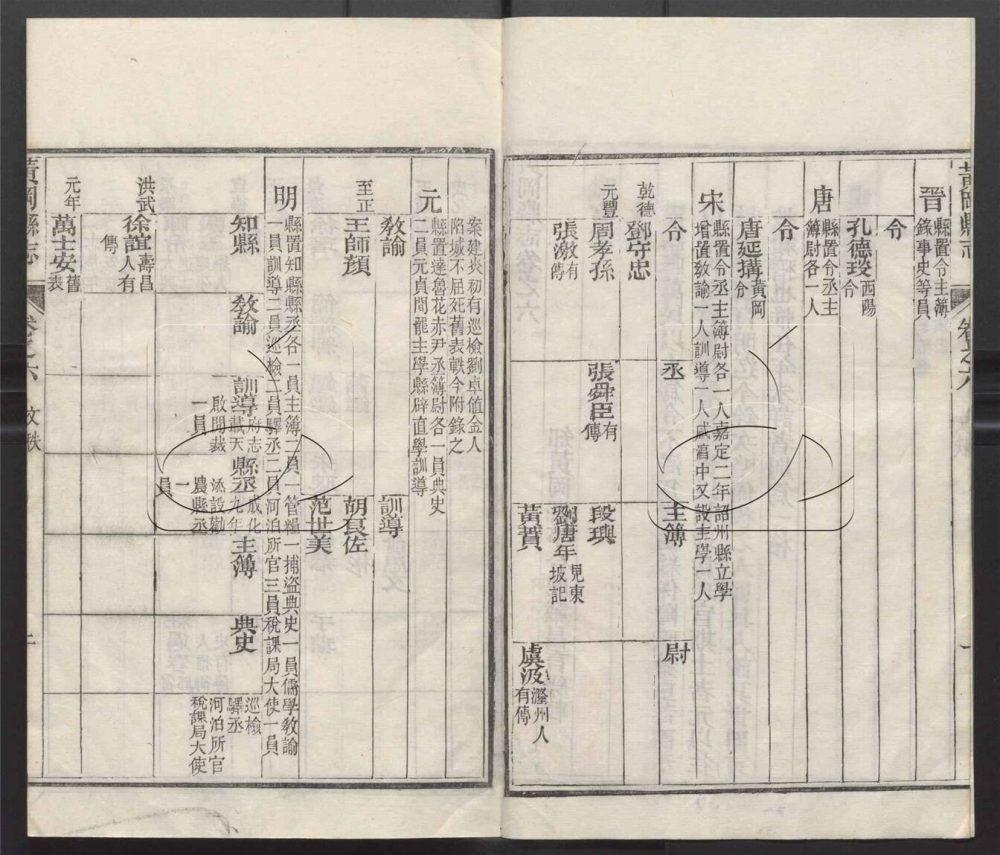 晉
縣置令主簿
錄事史等員
令
孔德琰
西陽
令
唐
縣置令丞主
簿尉各一人
令
唐延搆
黃岡
令
宋
縣置令丞主簿尉各一人嘉定二年詔州縣立學
增置敎諭一人訓導一人咸淳中又設主學一人
令
丞
主簿
尉
乾德
鄧守忠
元豐
周孝孫
張舜臣
有
傳
段璵
張激
有
傳
劉唐年
見東
坡記
黃賁
虞汲
有傳
案建炎初有巡檢劉卓値金人
陷城不屈死舊表軼今附錄之
元
縣置達魯花赤尹丞簿尉各一員典史
二員元貞間罷主學縣辟直學訓導
敎諭
訓導
至正
王師顏
胡良佐
范世美
明
縣置知縣縣丞各一員主簿二員一管糧一捕盜典史一員儒學敎諭
一員訓導二員巡檢二員驛丞二員河泊所官三員稅課局大使一員
知縣
敎諭
訓導
府志
載天
啟間裁
一員
縣丞
成化
九年
添設勸
農縣丞
一
員
主簿
典史
巡檢
驛丞
河泊所官
稅課局大使
洪武
徐誼
壽昌
人有
傳
元年
萬士安
舊
表
黃岡縣志
卷之六